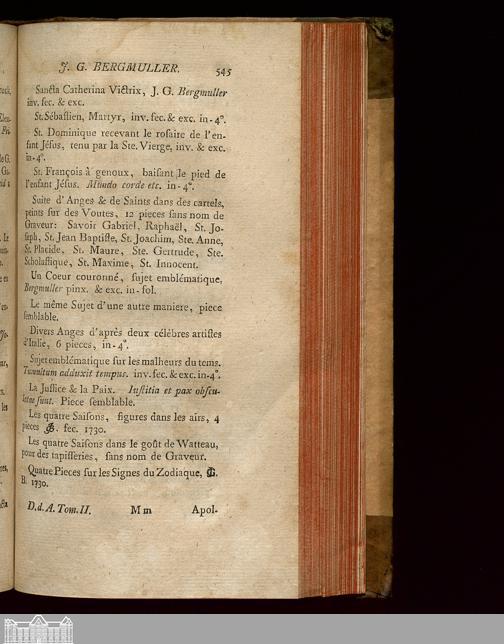 J. G. BERGMULLER. 545
Sancta Catherina Victrix, J. G. Bergmuller
inv. fec. & exc.
St. Sébastien, Martyr, inv. fec. & exc. in-4°.
St. Dominique recevant le rosaire de l'en-
fant Jésus, tenu par la Ste. Vierge, inv. & exc.
in-4°.
St. François à genoux, baisant le pied de
l'enfant Jésus. Mundo corde etc. in-4°.
Suite d'Anges & de Saints dans des cartels,
peints sur des Voutes, 12 pieces sans nom de
Graveur: Savoir Gabriel, Raphaël, St. Jo-
seph, St. Jean Baptiste, St. Joachim, Ste. Anne,
St. Placide, St. Maure, Ste. Gertrude, Ste.
Scholastique, St. Maxime, St. Innocent.
Un Coeur couronné, sujet emblématique,
Bergmuller pinx. & exc. in-fol.
Le même Sujet d'une autre maniere, piece
semblable.
Divers Anges d'après deux célèbres artistes
d'Italie, 6 pieces, in-4°.
Sujet emblématique sur les malheurs du tems.
Tumultum adduxit tempus. inv. fec. & exc. in-4°.
La Justice & la Paix. Iustitia et pax obscu-
latae sunt. Piece semblable.
Les quatre Saisons, figures dans les airs, 4
pieces fec. 1730.
Les quatre Saisons dans le goût de Watteau,
pour des tapisseries, sans nom de Graveur.
Quatre Pieces sur les Signes du Zodiaque, G.
B. 1730.
D. d. A. Tom. II. Mm Apol-